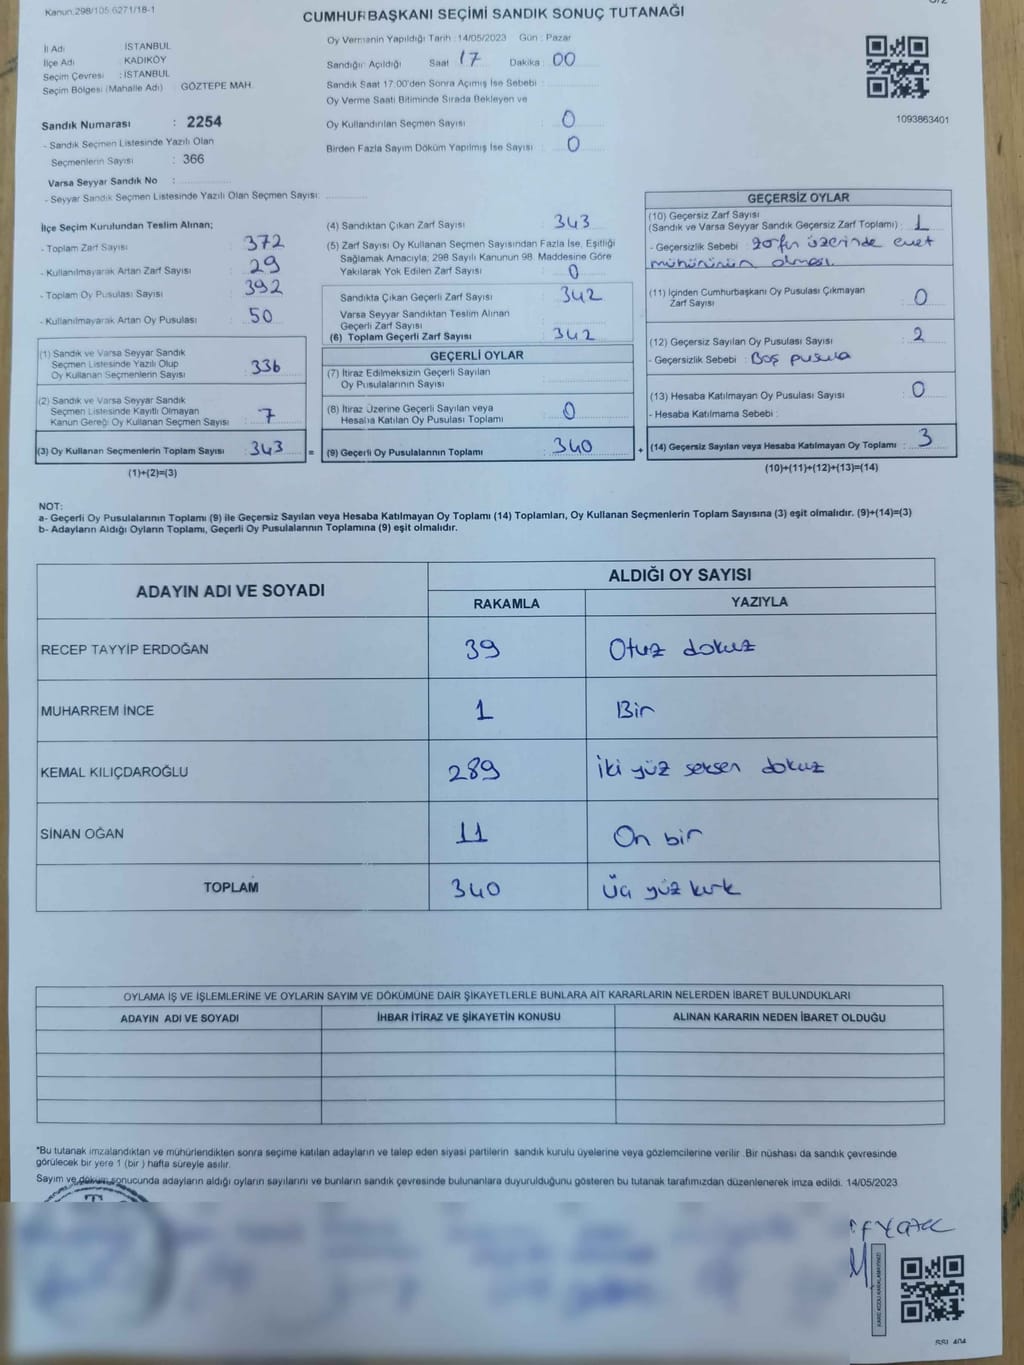 Kanun.298/105.6271/18-1
CUMHURBAŞKANI SEÇİMİ SANDIK SONUÇ TUTANAĞI
İl Adı : İSTANBUL
İlçe Adı : KADIKÖY
Seçim Çevresi : İSTANBUL
Seçim Bölgesi (Mahalle Adı) : GÖZTEPE MAH.
Oy Vermenin Yapıldığı Tarih :14/05/2023 Gün : Pazar
Sandığın Açıldığı Saat : 17 Dakika : 00
Sandık Saat 17:00'den Sonra Açılmış İse Sebebi :
Oy Verme Saati Bitiminde Sırada Bekleyen ve
Oy Kullandırılan Seçmen Sayısı : 0
Birden Fazla Sayım Döküm Yapılmış İse Sayısı : 0
1093863401
Sandık Numarası : 2254
- Sandık Seçmen Listesinde Yazılı Olan
Seçmenlerin Sayısı : 366
Varsa Seyyar Sandık No :
- Seyyar Sandık Seçmen Listesinde Yazılı Olan Seçmen Sayısı:
İlçe Seçim Kurulundan Teslim Alınan;
- Toplam Zarf Sayısı : 372
- Kullanılmayarak Artan Zarf Sayısı : 29
- Toplam Oy Pusulası Sayısı : 392
- Kullanılmayarak Artan Oy Pusulası : 50
(1) Sandık ve Varsa Seyyar Sandık
Seçmen Listesinde Yazılı Olup
Oy Kullanan Seçmenlerin Sayısı : 336
(2) Sandık ve Varsa Seyyar Sandık
Seçmen Listesinde Kayıtlı Olmayan
Kanun Gereği Oy Kullanan Seçmen Sayısı : 7
(3) Oy Kullanan Seçmenlerin Toplam Sayısı : 343 =
(1)+(2)=(3)
(4) Sandıktan Çıkan Zarf Sayısı : 343
(5) Zarf Sayısı Oy Kullanan Seçmen Sayısından Fazla İse, Eşitliği
Sağlamak Amacıyla; 298 Sayılı Kanunun 98. Maddesine Göre
Yakılarak Yok Edilen Zarf Sayısı : 0
Sandıkta Çıkan Geçerli Zarf Sayısı : 342
Varsa Seyyar Sandıktan Teslim Alınan
Geçerli Zarf Sayısı :
(6) Toplam Geçerli Zarf Sayısı : 342
GEÇERLİ OYLAR
(7) İtiraz Edilmeksizin Geçerli Sayılan
Oy Pusulalarının Sayısı :
(8) İtiraz Üzerine Geçerli Sayılan veya
Hesaba Katılan Oy Pusulası Toplamı : 0
(9) Geçerli Oy Pusulalarının Toplamı : 340 +
GEÇERSİZ OYLAR
(10) Geçersiz Zarf Sayısı
(Sandık ve Varsa Seyyar Sandık Geçersiz Zarf Toplamı) : 1
- Geçersizlik Sebebi : zarfın üzerinde evet
mührünün olması.
(11) İçinden Cumhurbaşkanı Oy Pusulası Çıkmayan
Zarf Sayısı : 0
(12) Geçersiz Sayılan Oy Pusulası Sayısı : 2
- Geçersizlik Sebebi : Boş pusula
(13) Hesaba Katılmayan Oy Pusulası Sayısı : 0
- Hesaba Katılmama Sebebi :
(14) Geçersiz Sayılan veya Hesaba Katılmayan Oy Toplamı : 3
(10)+(11)+(12)+(13)=(14)
NOT:
a- Geçerli Oy Pusulalarının Toplamı (9) ile Geçersiz Sayılan veya Hesaba Katılmayan Oy Toplamı (14) Toplamları, Oy Kullanan Seçmenlerin Toplam Sayısına (3) eşit olmalıdır. (9)+(14)=(3)
b- Adayların Aldığı Oyların Toplamı, Geçerli Oy Pusulalarının Toplamına (9) eşit olmalıdır.
ADAYIN ADI VE SOYADI
ALDIĞI OY SAYISI
RAKAMLA YAZIYLA
RECEP TAYYİP ERDOĞAN 39 Otuz dokuz
MUHARREM İNCE 1 Bir
KEMAL KILIÇDAROĞLU 289 iki yüz seksen dokuz
SİNAN OĞAN 11 On bir
TOPLAM 340 Üç yüz kırk
OYLAMA İŞ VE İŞLEMLERİNE VE OYLARIN SAYIM VE DÖKÜMÜNE DAİR ŞİKAYETLERLE BUNLARA AİT KARARLARIN NELERDEN İBARET BULUNDUKLARI
ADAYIN ADI VE SOYADI İHBAR İTİRAZ VE ŞİKAYETİN KONUSU ALINAN KARARIN NEDEN İBARET OLDUĞU
*Bu tutanak imzalandıktan ve mühürlendikten sonra seçime katılan adayların ve talep eden siyasi partilerin sandık kurulu üyelerine veya gözlemcilerine verilir .Bir nüshası da sandık çevresinde
görülecek bir yere 1 (bir ) hafta süreyle asılır.
Sayım ve döküm sonucunda adayların aldığı oyların sayılarını ve bunların sandık çevresinde bulunanlara duyurulduğunu gösteren bu tutanak tarafımızdan düzenlenerek imza edildi. 14/05/2023